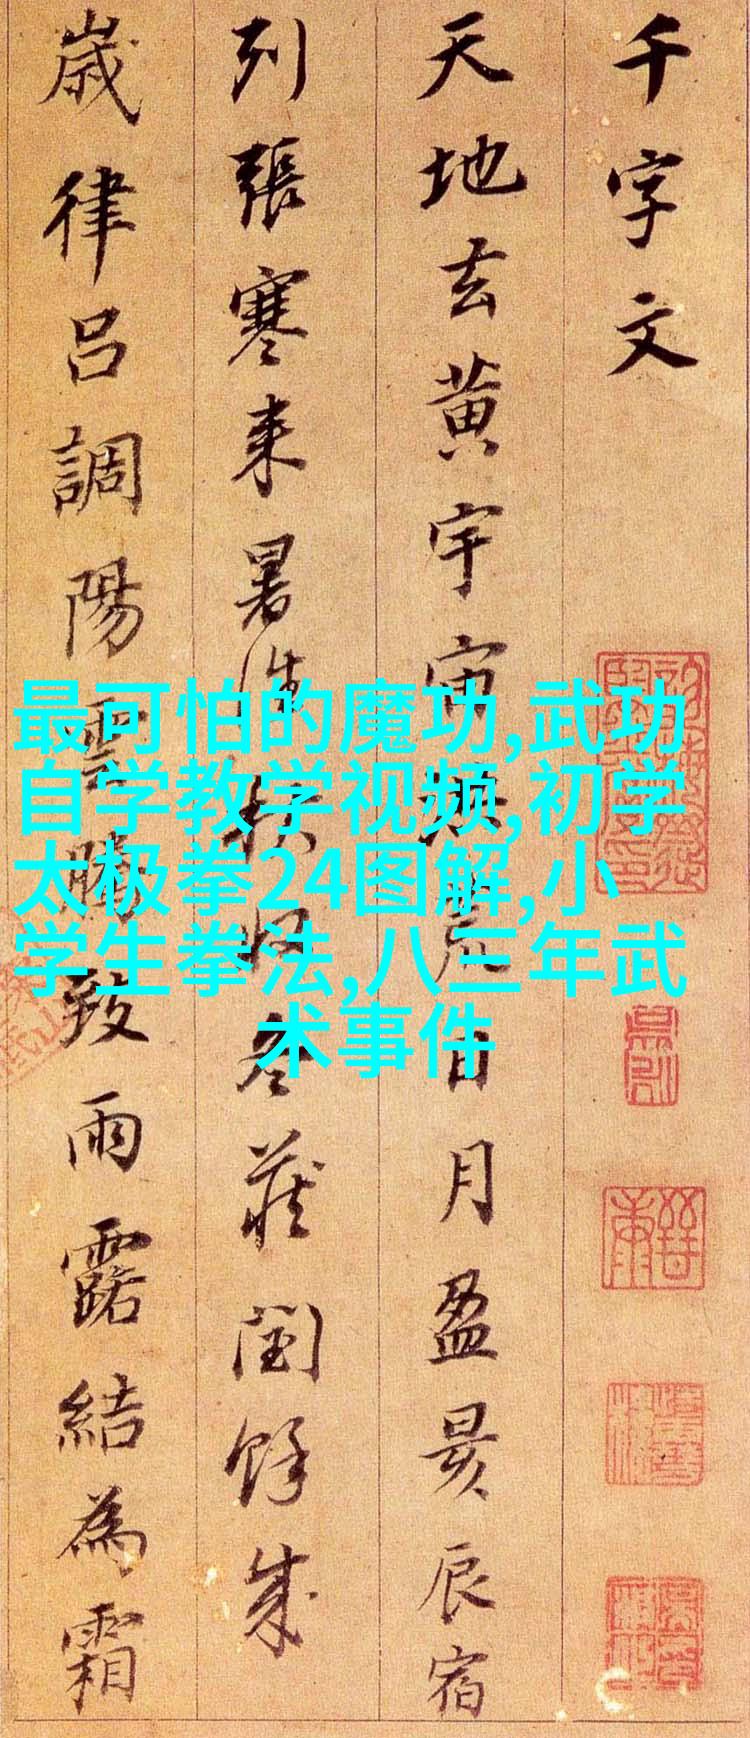 千字文
天地玄黄宇宙荒日月盈昃辰宿
列張寒来暑往秋收冬蔵閏餘成
歲律吕調陽雲騰致雨露結為霜
最可怕的魔功,武功
自学教学视频,初学
太极拳24图解,小
学生拳法,八三年武
术事件